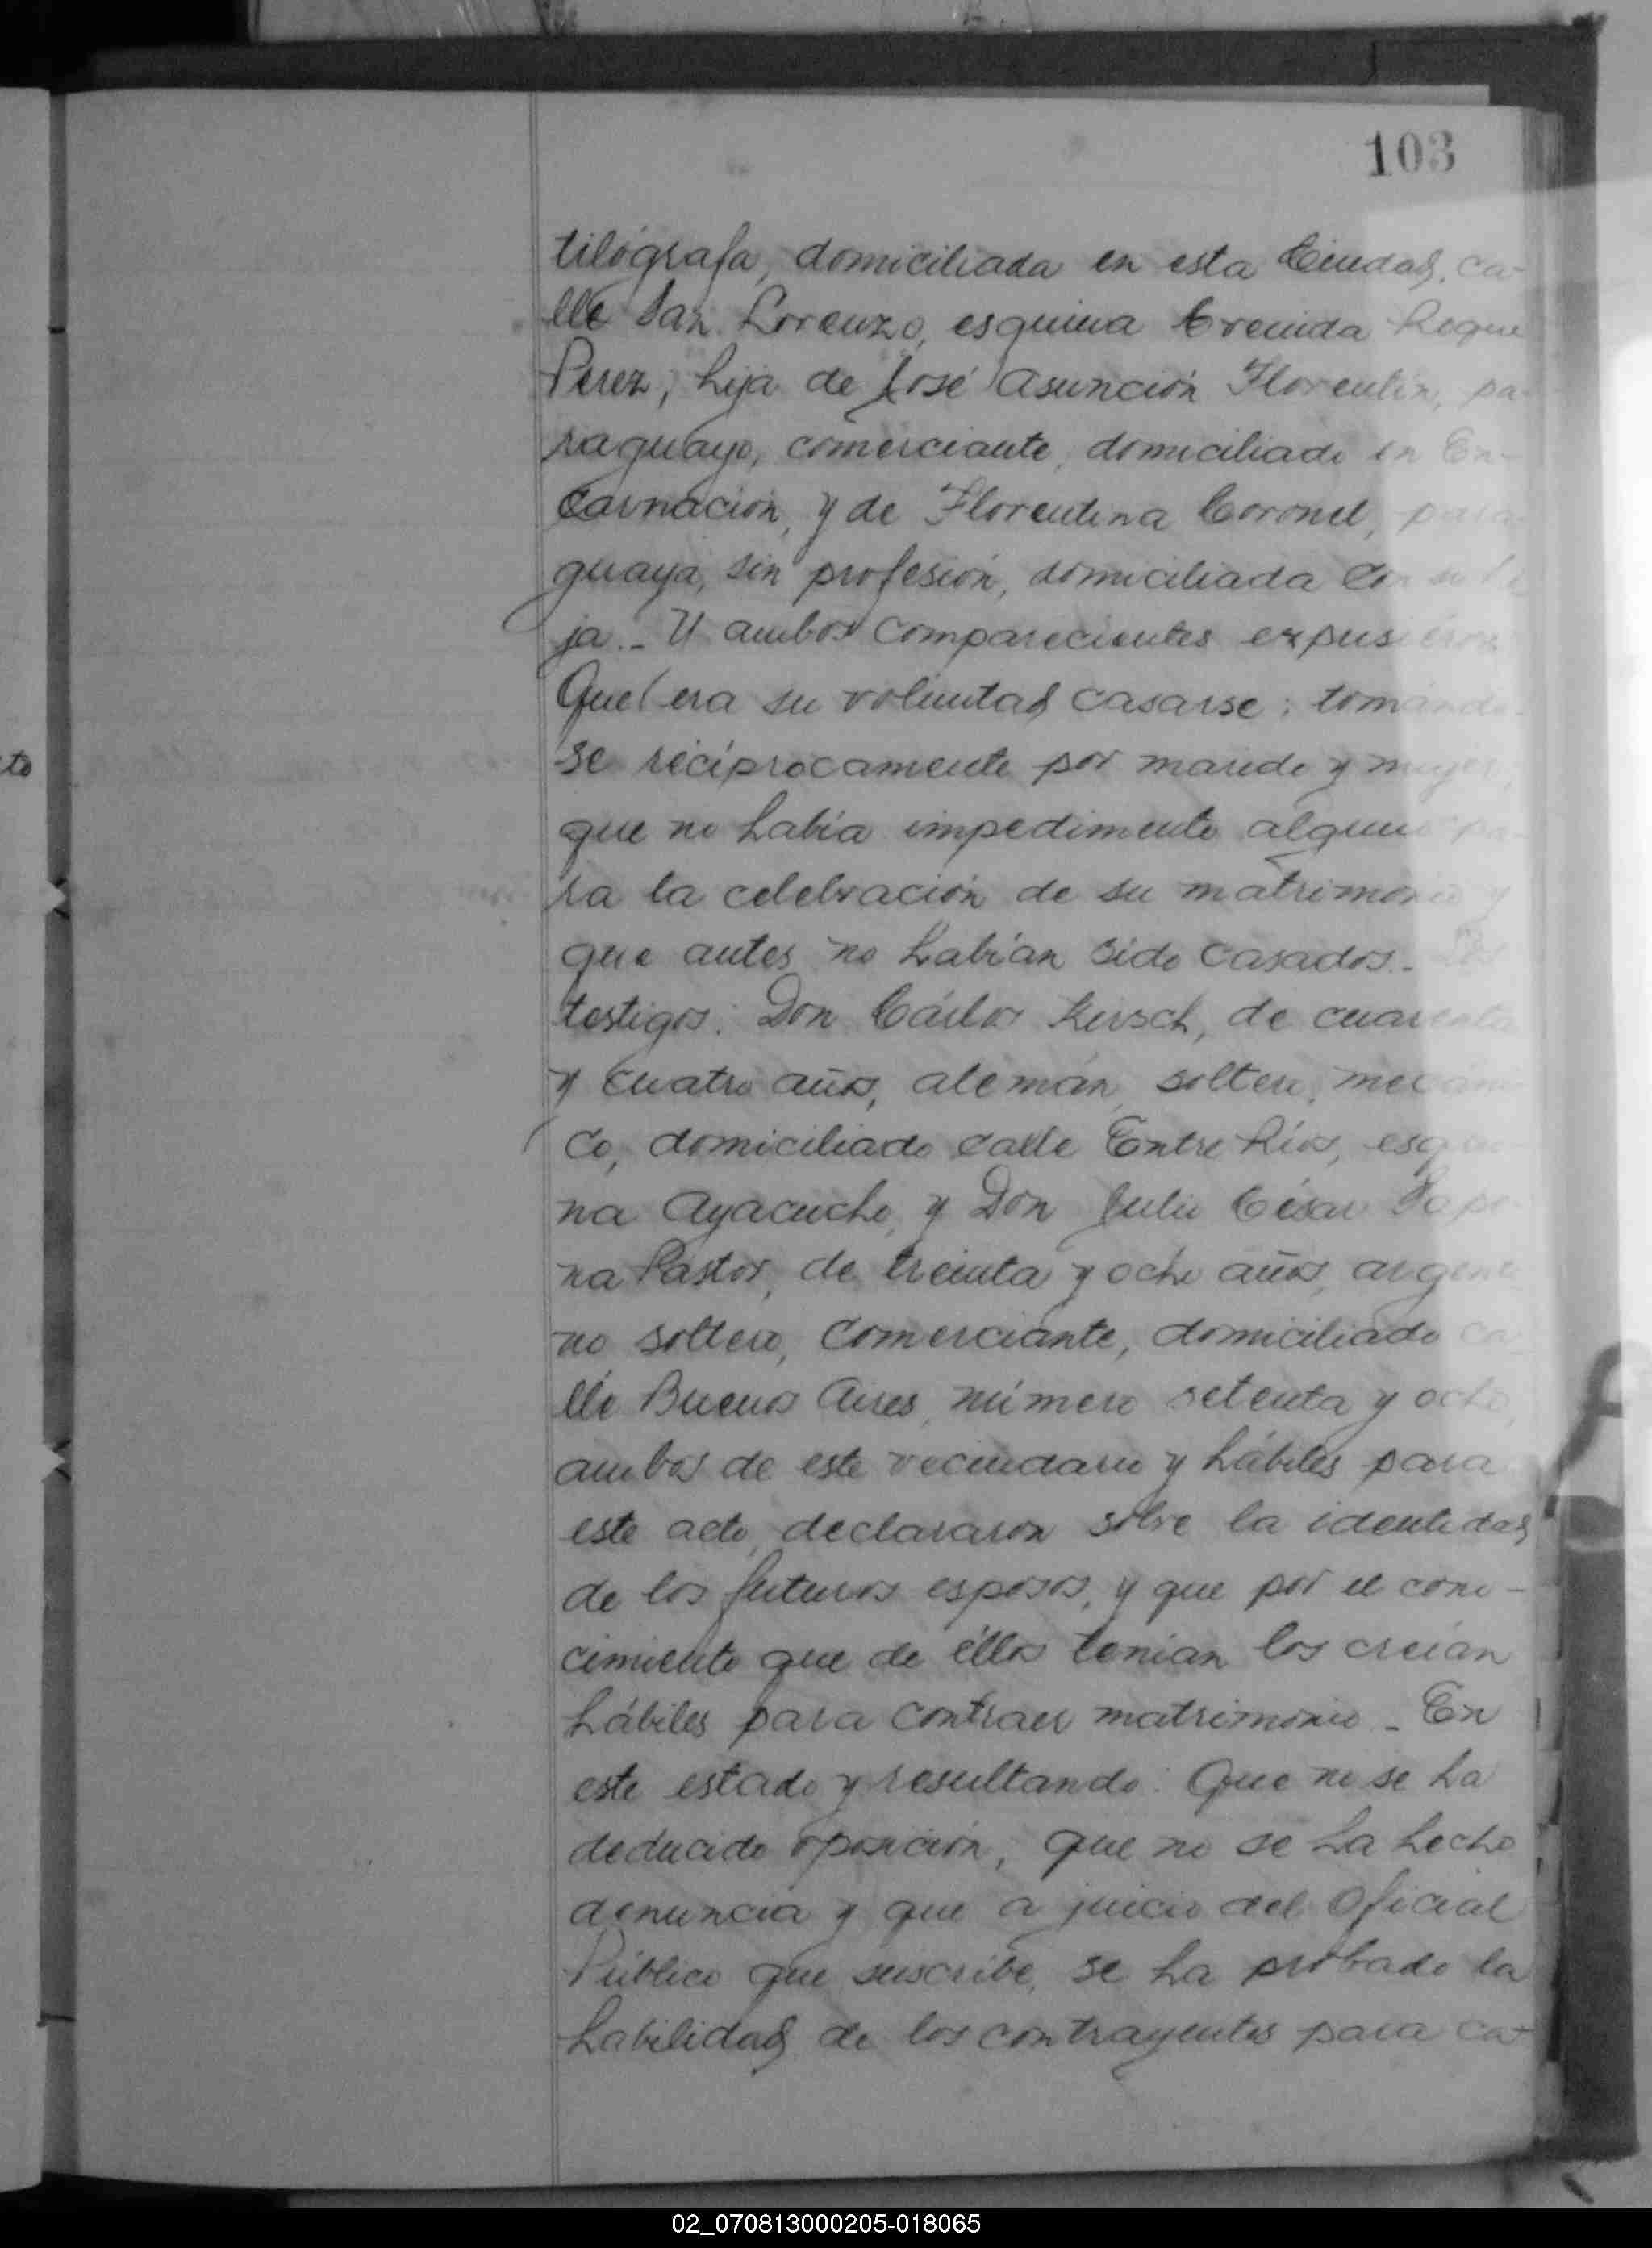 103
tilógrafa, domiciliada en esta Ciudad, ca-
lle San Lorenzo, esquina Avenida Roque
Perez, hija de José Asunción Florentin, pa-
raguayo, comerciante, domiciliado en En-
carnación, y de Florentina Coronel, para-
guaya, sin profesión, domiciliada con su hi-
ja.- Y ambos comparecientes expusieron
Que era su voluntad casarse; tomando-
se recíprocamente por marido y mujer,
que no había impedimento alguno pa-
ra la celebración de su matrimonio y
que antes no habían sido casados.- Los
testigos: Don Cárlos Kirsch, de cuarenta
y cuatro años, alemán, soltero, mecáni
co, domiciliado calle Entre Ríos, esqui
na Ayacucho, y Don Julio César
na Pastor, de treinta y ocho años, argenti
no soltero, comerciante, domiciliado ca
lle Buenos Aires, número setenta y ocho,
ambos de este vecindario y hábiles para
este acto, declararon sobre la identidad
de los futuros esposos, y que por el cono-
cimiento que de éllos tenían los creían
hábiles para contraer matrimonio - En
este estado y resultando: Que no se ha
deducido oposición, que no se ha hecho
denuncia y que a juicio del Oficial
Público que suscribe, se ha probado la
habilidad de los contrayentes para ca-
to
02_070813000205-018065